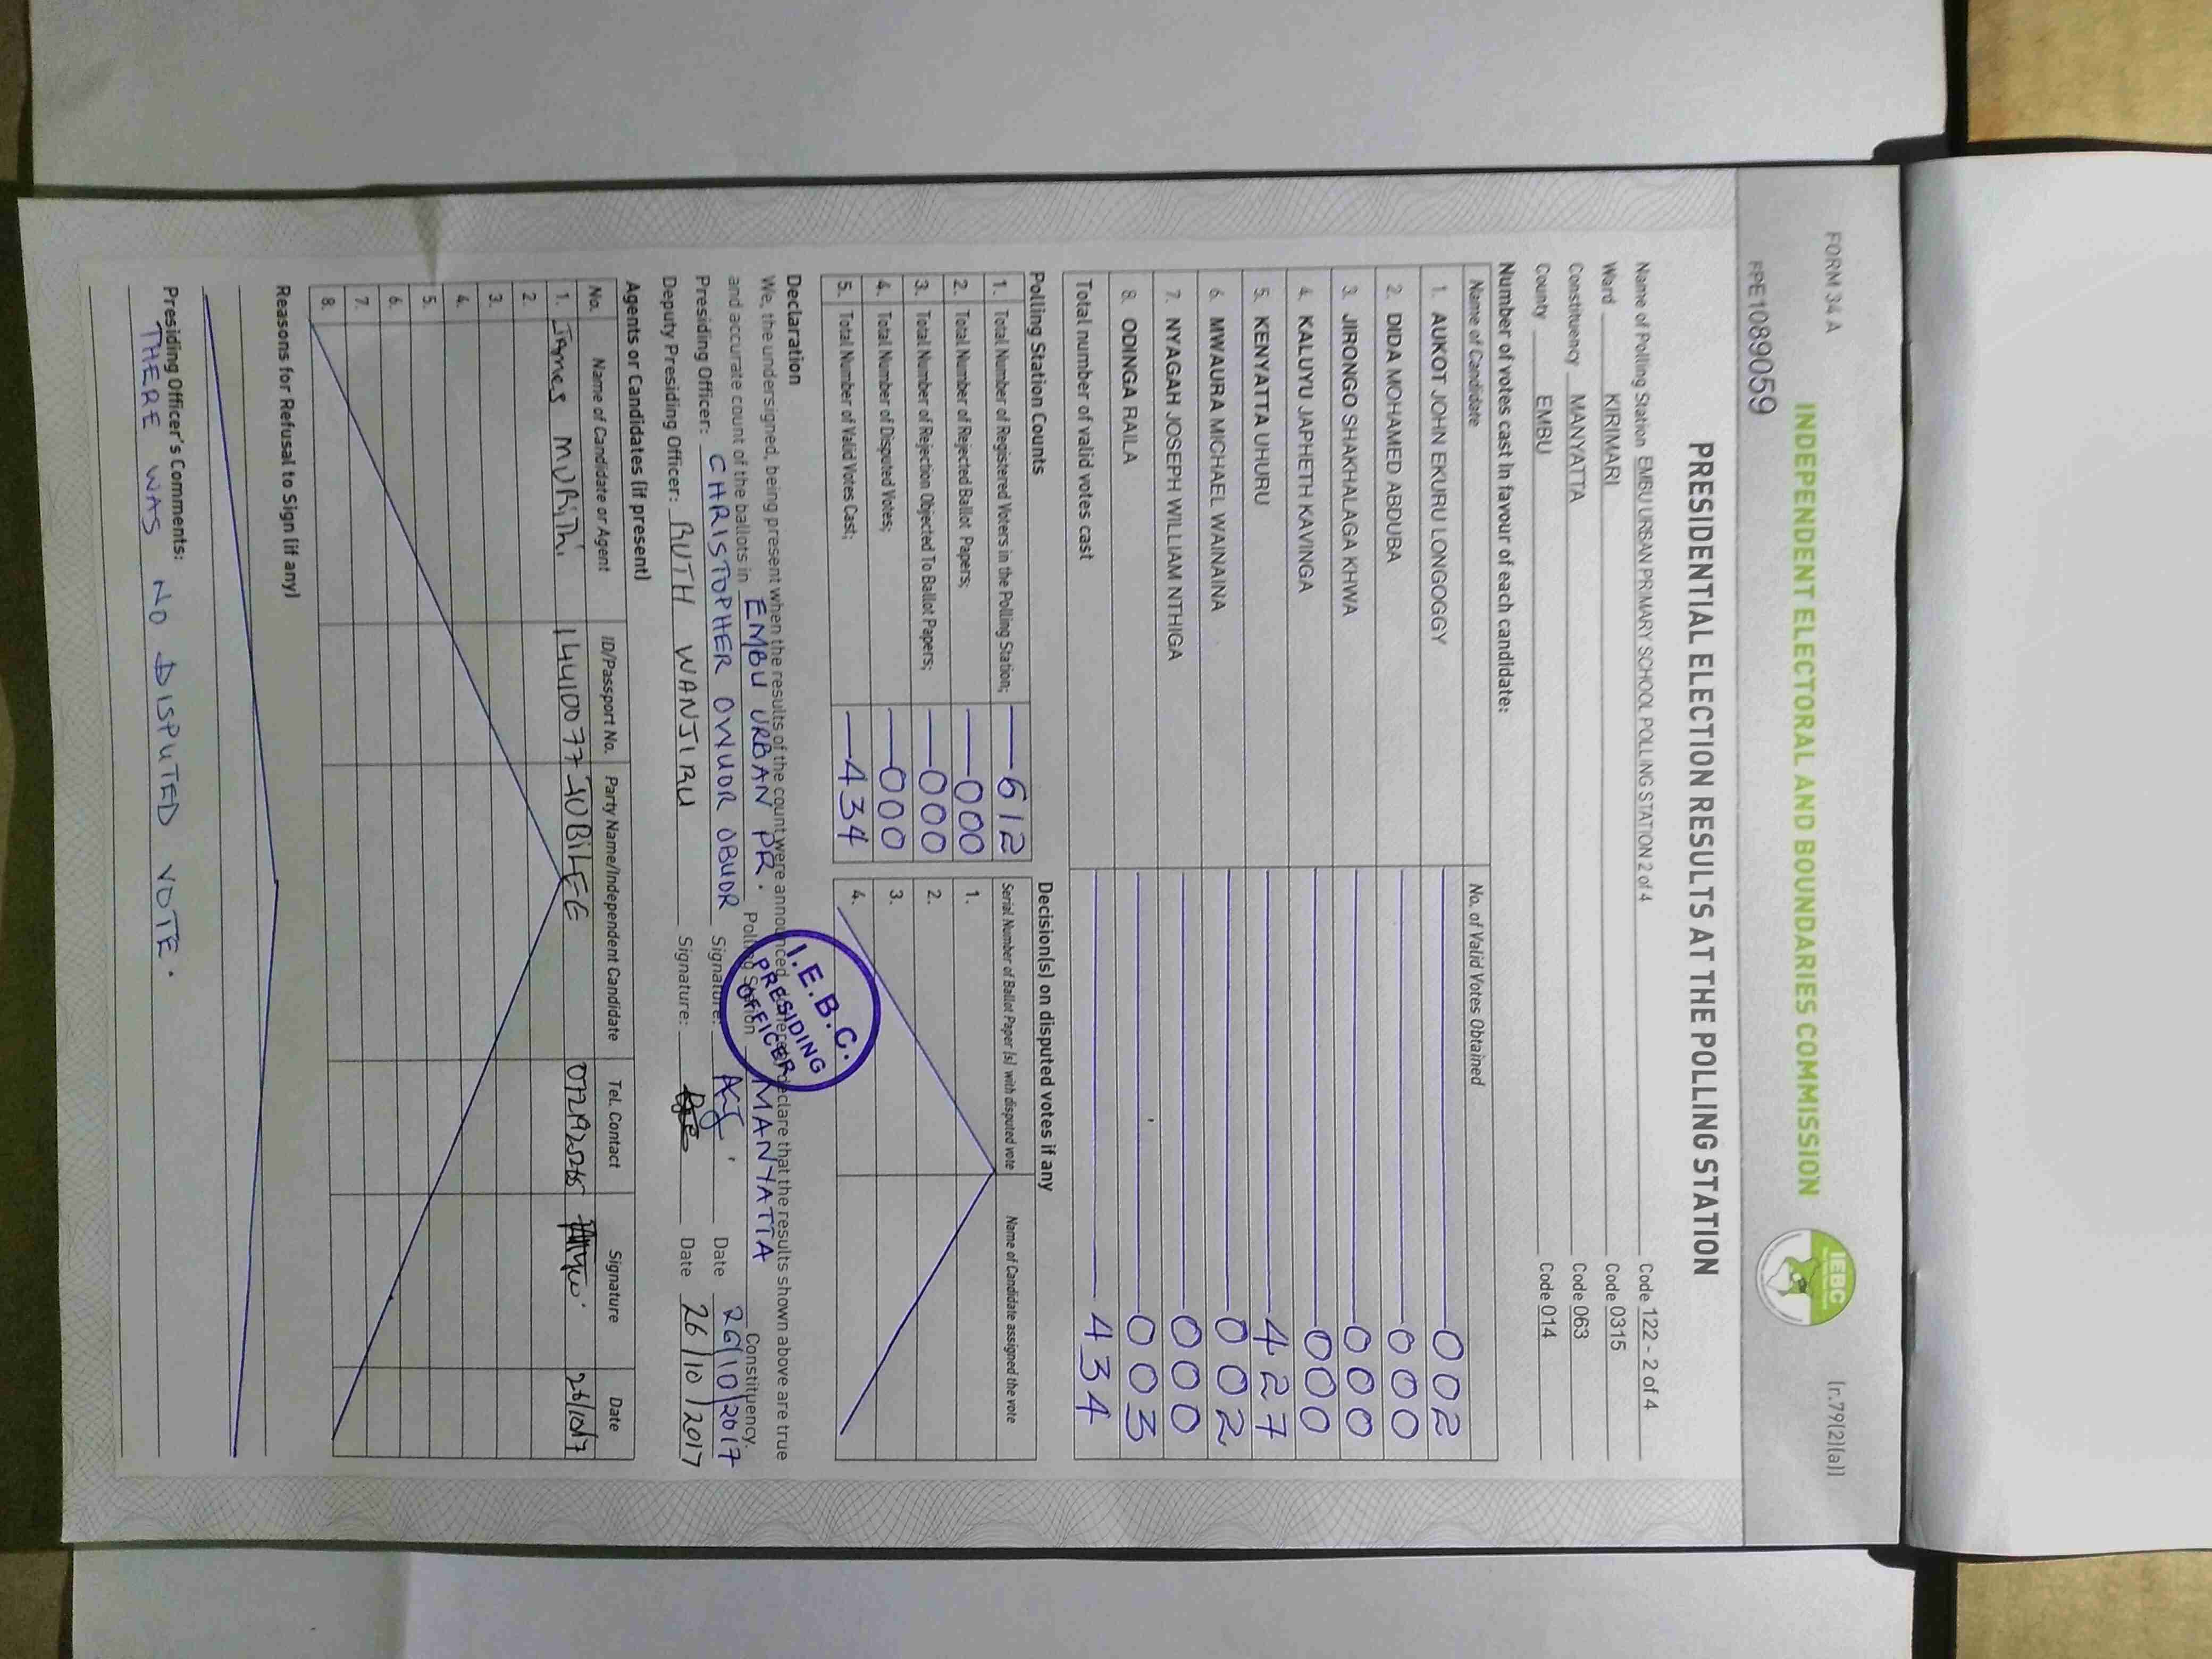 FORM 34 A
(r.79(2)(a))
INDEPENDENT ELECTORAL AND BOUNDARIES COMMISSION
IEBC
PPE1089059
PRESIDENTIAL ELECTION RESULTS AT THE POLLING STATION
Name of Polling Station EMBU URBAN PRIMARY SCHOOL POLLING STATION 2 of 4 Code 122 - 2 of 4
Ward KIRIMARI Code 0315
Constituency MANYATTA Code 063
County EMBU Code 014
Number of votes cast in favour of each candidate:
Name of Candidate No. of Valid Votes Obtained
1. AUKOT JOHN EKURU LONGOGGY 002
2. DIDA MOHAMED ABDUBA 000
3. JIRONGO SHAKHALAGA KHWA 000
4. KALUYU JAPHETH KAVINGA 000
5. KENYATTA UHURU 427
6. MWAURA MICHAEL WAINAINA 002
7. NYAGAH JOSEPH WILLIAM NTHIGA 000
8. ODINGA RAILA 003
Total number of valid votes cast 434
Polling Station Counts
1. Total Number of Registered Voters in the Polling Station; 612
2. Total Number of Rejected Ballot Papers; 000
3. Total Number of Rejection Objected To Ballot Papers; 000
4. Total Number of Disputed Votes; 000
5. Total Number of Valid Votes Cast; 434
Decision(s) on disputed votes if any
Serial Number of Ballot Paper (s) with disputed vote Name of Candidate assigned the vote
1.
2.
3.
4.
Declaration
We, the undersigned, being present when the results of the count were announced, do hereby declare that the results shown above are true
and accurate count of the ballots in EMBU URBAN PR. Polling Station MANYATTA Constituency.
Presiding Officer: CHRISTOPHER OWUOR OBUOR Signature: Date 26/10/2017
Deputy Presiding Officer: RUTH WANJIRU Signature: Date 26/10/2017
I.E.B.C.
PRESIDING
OFFICER
Agents or Candidates (if present)
No. Name of Candidate or Agent ID/Passport No. Party Name/Independent Candidate Tel. Contact Signature Date
1. James MURiThi 14410077 JUBiLEE 26/10/17
2.
3.
4.
5.
6.
7.
8.
Reasons for Refusal to Sign (if any)
Presiding Officer's Comments:
THERE WAS NO DISPUTED VOTE.